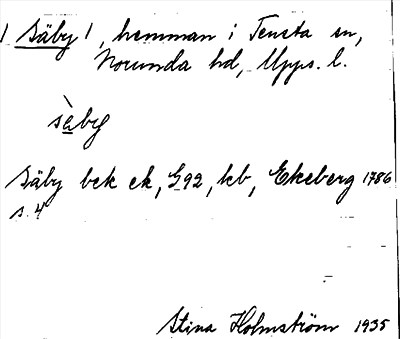 / Säby /, hemman i Tensta sn,
Norunda hd, Upps. l.
sàby
Säby bek ek, G92, kb, Ekeberg 1786
s. 4
Stina Holmström 1935